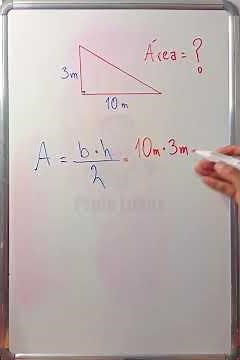 Área = ?
3m
10m
A = b · h / 2 = 10m · 3m -
Paulo Lukas